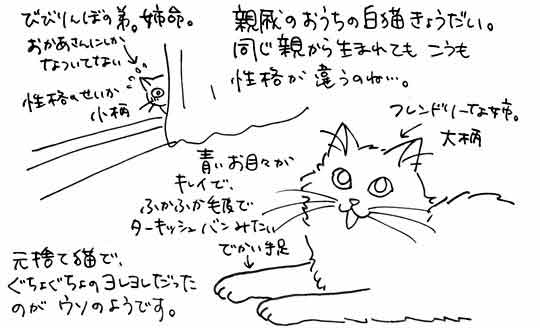 親戚のおうちの白猫きょうだい。
同じ親から生まれても こうも
性格が違うのね…。
びびりんぼの弟。姉命。
おかあさんにしか
なついてない
性格のせいか
小柄
フレンドリーな姉。
大柄
青いお目々が
キレイで、
ふかふか毛皮で
ターキッシュバンみたい
でかい手足
元捨て猫で、
ぐちょぐちょのヨレヨレだった
のが ウソのようです。